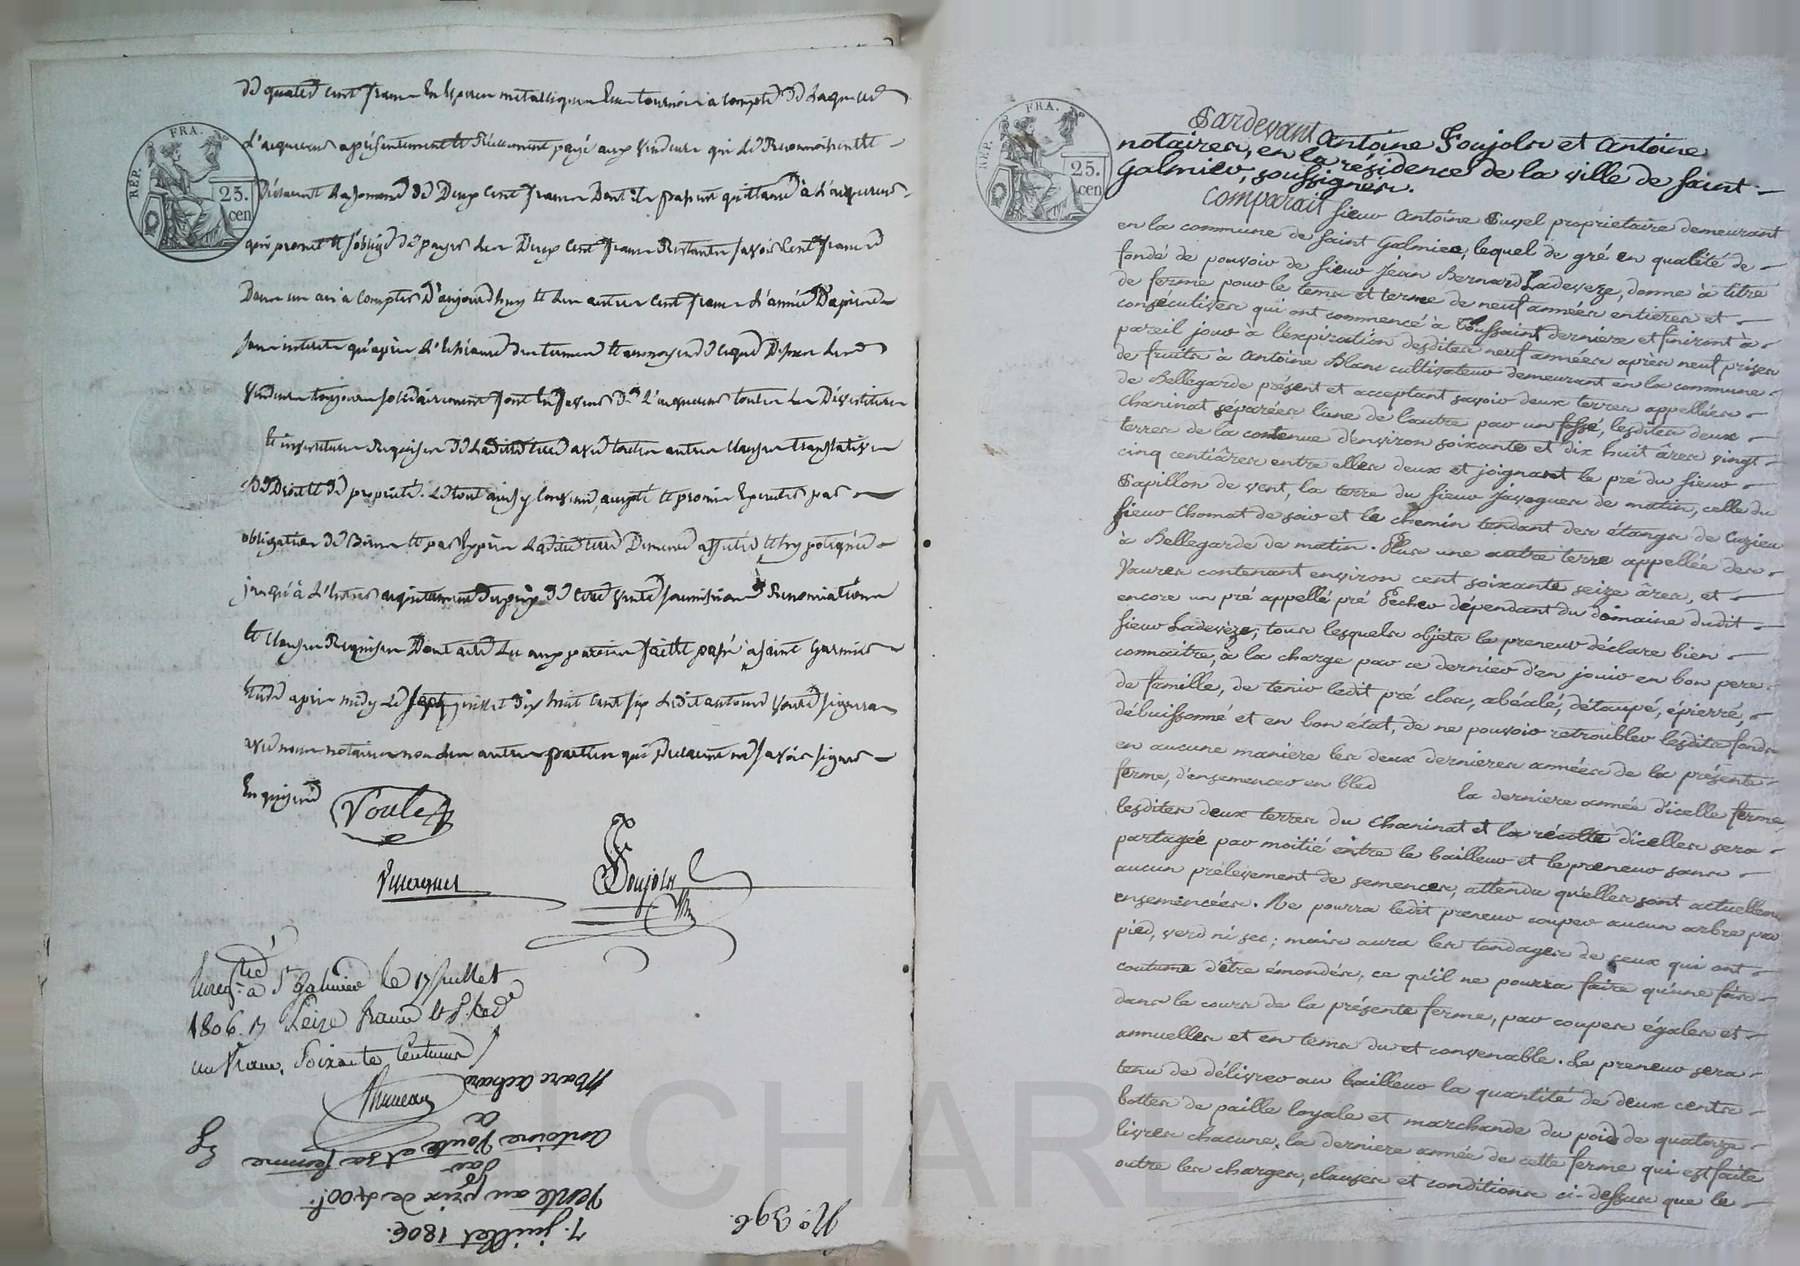 de quatre cent francs En Espèces métalliques En tournois a compte de Laquelle
L'acquereur a présentement et Réellement payé aux vendeurs qui Le Reconnoissent
La somme de Deux Cent francs Dont ils passent quittance à L'acquereur
qui promet et s'oblige de payer Les Deux Cent francs Restants savoir Cent francs
Dans un an a Compter D'aujourd'huy et Les autres Cent francs L'année D'après
sans interets qu'après L'Echéance des termes et au moyen de ce que Dessus Les
vendeurs toujours solidairement font En faveur de L'acquereur toutes Les Dévestitures
et investitures Requises de Ladite terre avec toutes autres Clauses translatives
De Droit et de propriété. Le tout ainsy Convenu, accepté et promis Executer par
obligation de Biens et par Exprès Ladite terre Demeure affectée et hypotequée
jusqu'à L'Entier acquittement du prix de Cette vente soumissions Renonciations
et Clauses Requises Dont acte Lu aux parties fait et passé a saint Galmier
Etude après midy Le sept juillet Dix huit Cent six Ledit antoine voute signera
avec nous notaires non Les autres parties qui Déclarent ne savoir signer
Enquises
REP. FRA.
25. cen
Voute
Soujols
Enregtré à St Galmier le 17 juillet
1806. Rx Seize francs et S. de
un franc, Soixante Centimes
Marc achard
a
Antoine Voute et sa femme
par
Vente au prix de 400f.
7. juillet 1806.
No. 396.
REP. FRA.
25. cen
Pardevant Antoine Soujols et Antoine
notaires, en la résidence de la ville de Saint-
Galmier, soussignés.
Comparait sieur Antoine Purel propriétaire demeurant
en la commune de Saint Galmier, lequel de gré en qualité de
fondé de pouvoir de sieur Jean Bernard Ladeveze, donne à titre
de ferme pour le tems et terme de neuf années entieres et
consécutives qui ont commencé à Toussaint derniere et finiront à
pareil jour à l'expiration desdites neuf années après neuf prises
de fruits à Antoine Blanc cultivateur demeurant en la commune
de Bellegarde présent et acceptant savoir deux terres appellées
Chaninat séparées l'une de l'autre par un fossé, lesdites deux
terres de la contenue d'environ soixante et dix huit âres vingt
cinq centiâres entre elles deux et joignant le pré du sieur
Papillon de vent, la terre du sieur Javogues de matin, celle du
sieur Chomat de soir et le chemin tendant des étangs de Cuzieu
à Bellegarde de matin. Plus une autre terre appellée des
Vaures contenant environ cent soixante seize âres, et
encore un pré appellé pré Pecher dépendant du domaine dudit
sieur Ladevèze, tous lesquels objets le preneur déclare bien
connaitre, à la charge par ce dernier d'en jouir en bon pere
de famille, de tenir ledit pré clos, abéalé, détaupé, épierré,
débuissonné et en bon état, de ne pouvoir retroubler lesdits fonds
en aucune maniere les deux dernieres années de la présente
ferme, d'ensemencer en bled la derniere année d'icelle ferme
lesdites deux terres du Chaninat et la récolte d'icelles sera
partagée par moitié entre le bailleur et le preneur sans
aucun prélevement de semences, attendu qu'elles sont actuellemt
ensemencées. Ne pourra ledit preneur couper aucun arbre par
pied, verd ni sec; mais aura les tondages de ceux qui ont
coutume d'être émondés, ce qu'il ne pourra faire qu'une fois
dans le cours de la présente ferme, par coupes égales et
annuelles et en tems du et convenable. Le preneur sera
tenu de délivrer au bailleur la quantité de deux cents
bottes de paille loyale et marchande du poids de quatorze
livres chacune, la derniere année de cette ferme qui est faite
outre les charges, clauses et conditions ci-dessus que le
Pascal CHAREYRON